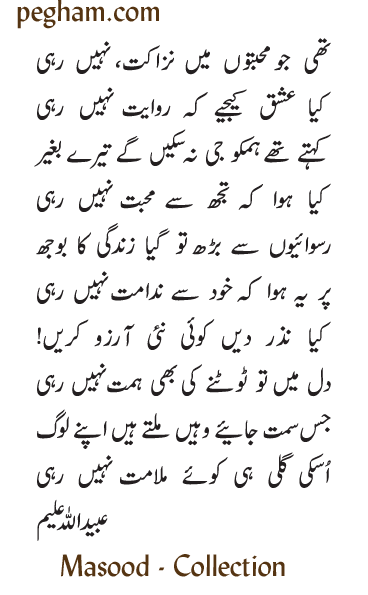 pegham.com
تھی جو محبتوں میں نزاکت، نہیں رہی
کیا عشق کیجیے کہ روایت نہیں رہی
کہتے تھے ہمکو جی نہ سکیں گے تیرے بغیر
کیا ہوا کہ تجھ سے محبت نہیں رہی
رسوائیوں سے بڑھ تو گیا زندگی کا بوجھ
پر یہ ہوا کہ خود سے ندامت نہیں رہی
کیا نذر دیں کوئی نئی آرزو کریں!
دل میں تو ٹوٹنے کی بھی ہمت نہیں رہی
جس سمت جایئے وہیں ملتے ہیں اپنے لوگ
اُسکی گلی ہی کوئے ملامت نہیں رہی
عبیداللہ علیم
Masood - Collection